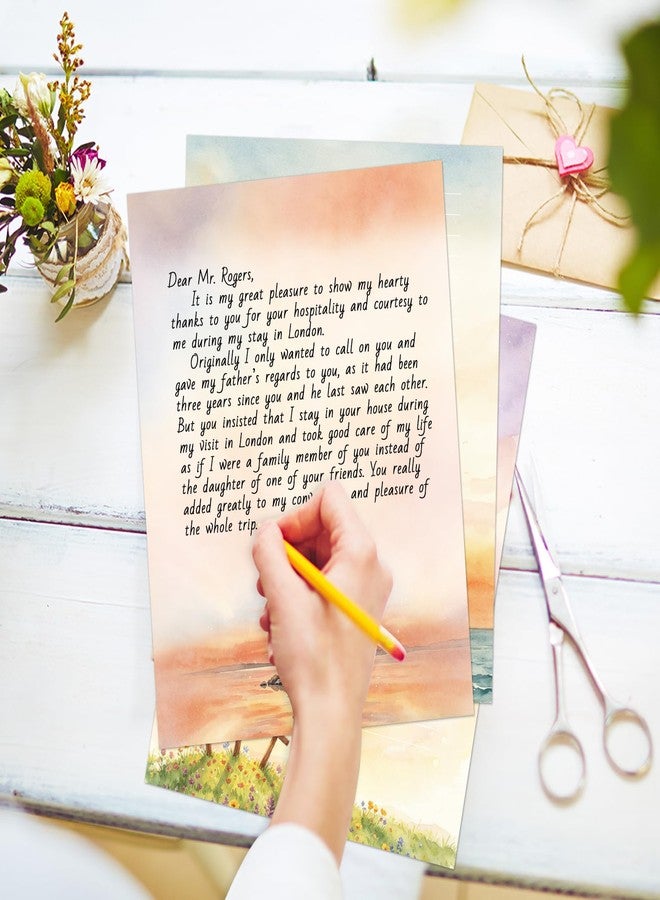 Dear Mr. Rogers,
It is my great pleasure to show my hearty
thanks to you for your hospitality and courtesy to
me during my stay in London.
Originally I only wanted to call on you and
gave my father's regards to you, as it had been
three years since you and he last saw each other.
But you insisted that I stay in your house during
my visit in London and took good care of my life
as if I were a family member of you instead of
the daughter of one of your friends. You really
added greatly to my and pleasure of
the whole trip.